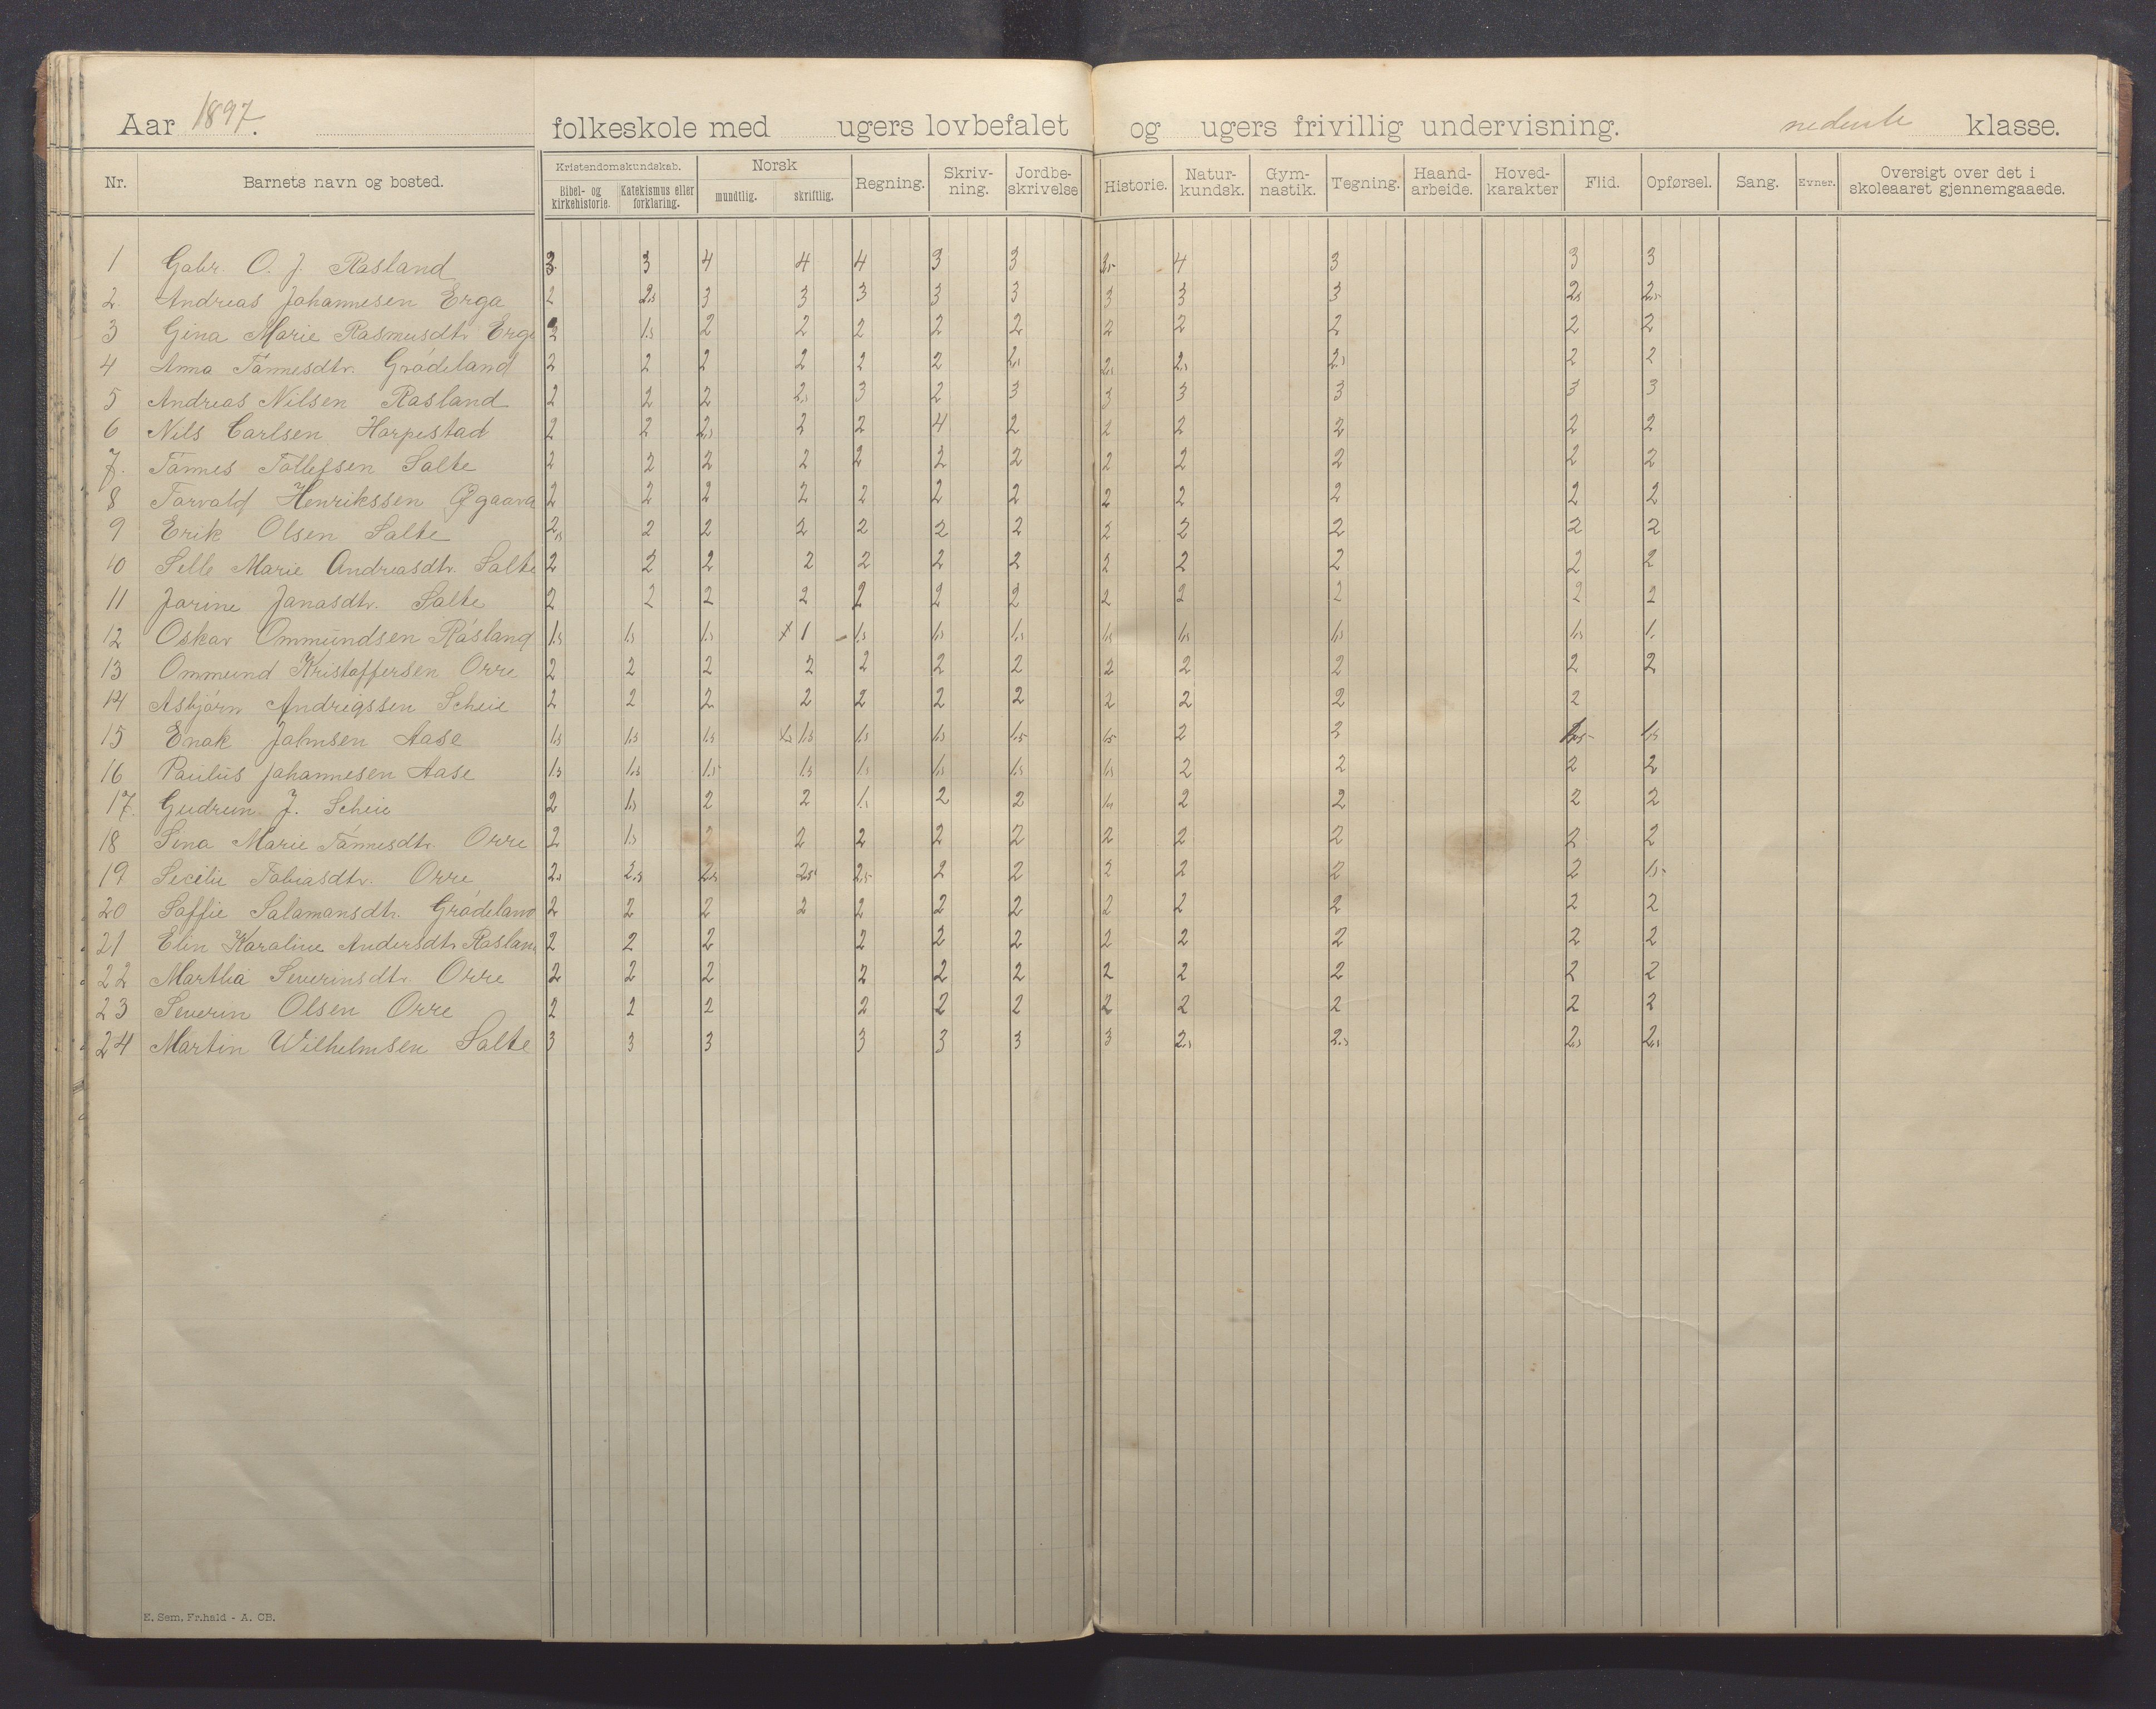 Aar 1897. folkeskole med ugers lovbefalet og ugers frivillig undervisning. nederste klasse.
Nr. Barnets navn og bosted. Kristendomskundskab. Bibel- og kirkehistorie. Katekismus eller forklaring. Norsk mundtlig. skriftlig. Regning. Skriv-ning. Jordbe-skrivelse Historie. Natur-kundsk. Gym-nastik. Tegning. Haand-arbeide. Hoved-karakter Flid. Opførsel. Sang. Evner. Oversigt over det i skoleaaret gjennemgaaede.
1 Gabr. O. J. Rasland 3 3 4 4 4 3 3 2.5 4 3 3 3
2. Andreas Johannesen Erga 2 2.5 3 3 3 3 3 3 3 3 2.5 2.5
3 Gina Marie Rasmusdtr Erga 2 1.5 2 2 2 2 2 2 2 2 2 2
4 Anna Tönnesdtr. Grödeland 2 2 2 2 2 2 2.5 2.5 2.5 2.5 2 2
5 Andreas Nilsen Rasland 2 2 2 2.5 3 2 3 3 3 3 3 3
6 Nils Carlsen Harpestad 2 2 2.5 2 2 4 2 2 2 2 2 2
7. Tönnes Tollefsen Salte 2 2 2 2 2 2 2 2 2 2 2 2
8 Torvald Henrikssen 2 2 2 2 2 2 2 2 2 2 2 2
9 Erik Olsen Salte 2.5 2 2 2 2 2 2 2 2 2 2 2
10 Selle Marie Andreasdtr. Salte 2 2 2 2 2 2 2 2 2 2 2 2
11 Jorine Jonasdtr. Salte 2 2 2 2 2 2 2 2 2 2 2 2
12 Oskar Ommundsen Råsland 1.5 1.5 1.5 x 1 1.5 1.5 1.5 1.5 1.5 1.5 1.5 1.
13 Ommund Kristoffersen Orre 2 2 2 2 2 2 2 2 2 2 2 2
14 Asbjörn Andreassen Scheie 2 2 2 2 2 2 2 2 2 2 2
15 Enok Johnsen Aase 1.5 1.5 1.5 1.5 1.5 1.5 1.5 1.5 2 2 1.5 1.5
16 Paulus Johannesen Aase 1.5 1.5 1.5 1.5 1.5 1.5 1.5 1.5 2 2 2 2
17. Gudrun J. Scheie 2 1.5 2 2 1.5 2 2 1.5 2 2 2 2
18 Sina Marie Tönnesdtr. Orre 2 1.5 2 2 2 2 2 2 2 2 2 2
19 Secelie Tobiasdtr. Orre 2.5 2.5 2.5 2.5 2.5 2 2 2 2 2 2 1.5
20 Soffie Salamonsdtr. Grödeland 2 2 2 2 2 2 2 2 2 2 2 2
21 Elin Karoline Andersdtr Rasland 2 2 2 2 2 2 2 2 2 2 2
22 Martha Severinsdtr. Orre 2 2 2 2 2 2 2 2 2 2 2
23 Severin Olsen Orre 2 2 2 2 2 2 2 2 2 2 2
24 Martin Wilhelmsen Salte 3 3 3 3 3 3 3 2.5 2.5 2.5 2.5
E. Sem, Fr.hald - A. CB.